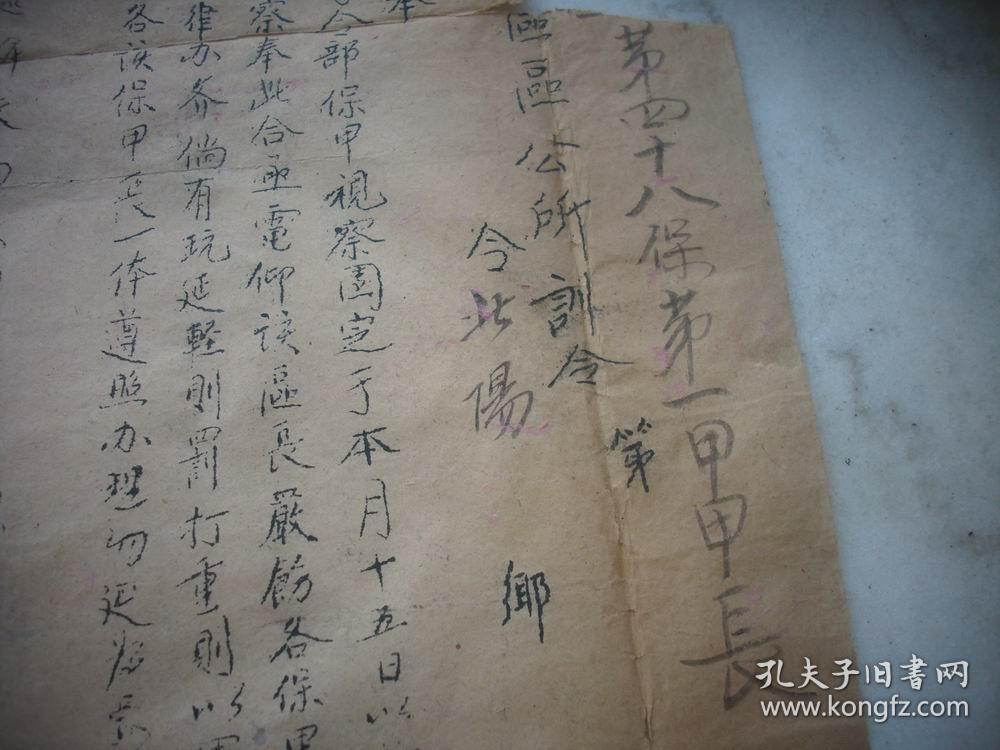 第四十八保第一甲甲長
區區公所訓令 第
令北陽 鄉
令部保甲視察團定于本月十五日以
察奉此合亟電仰该區長嚴飭各保甲
律办务倘有玩延軽則罰打重則以
各该保甲長一体遵照办理勿延为
孔夫子旧书网
www.kongfz.com